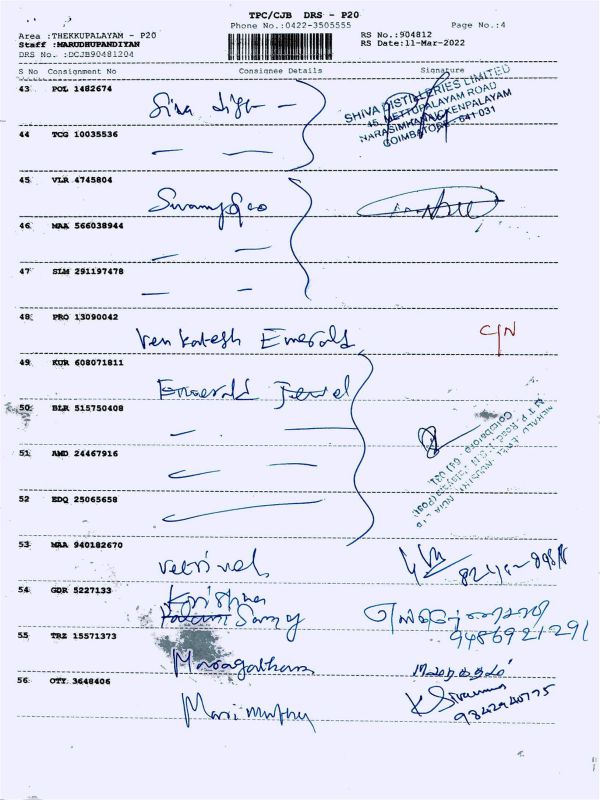 TPC/CJB DRS - P20
Phone No.:0422-3505555
Page No.:4
Area :THEKKUPALAYAM - P20
Staff :MARUDHUPANDIYAN
DRS No. :DCJB90481204
RS No.:904812
RS Date:11-Mar-2022
S No Consignment No Consignee Details Signature
43 POL 1482674
SHIVA DISTILLERIES LIMITED
45, METTUPALAYAM ROAD
NARASIMHANAICKENPALAYAM
COIMBATORE - 641 031
44 TCG 10035536
45 VLR 4745804
46 MAA 566038944
47 SLM 291197478
48 PRO 13090042
Venkatesh Emerald C/N
49 KUR 608071811
Emerald Jewel
50 BLR 515750408
51 AMD 24467916
52 EDQ 25065658
53 MAA 940182670
Vetrivel
54 GDR 5227133
Krishna
Samy
9486921291
55 TRZ 15571373
Maragatham
56 OTY 3648406
Marimuthu
9842940775